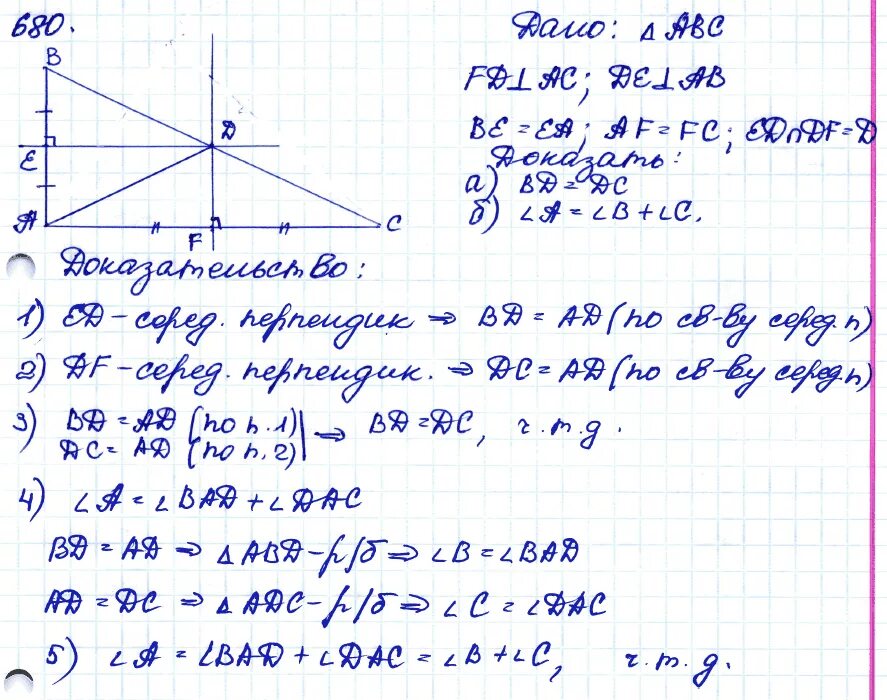 680.
Дано: △ABC
FD⊥AC; DE⊥AB
BE=EA; AF=FC; ED∩DF=D
Доказать:
а) BD=DC
б) ∠A=∠B+∠C.
B
D
E
A
F
C
Доказательство:
1) ED – серед. перпендик ⇒ BD = AD (по св-ву серед.п)
2) DF – серед. перпендик. ⇒ DC = AD (по св-ву серед.п)
3) BD = AD (по п.1) | ⇒ BD=DC, ч.т.д.
DC = AD (по п.2)
4) ∠A = ∠BAD + ∠DAC
BD = AD ⇒ △ABD – р/б ⇒ ∠B = ∠BAD
AD = DC ⇒ △ADC – р/б ⇒ ∠C = ∠DAC
5) ∠A = ∠BAD + ∠DAC = ∠B + ∠C, ч.т.д.